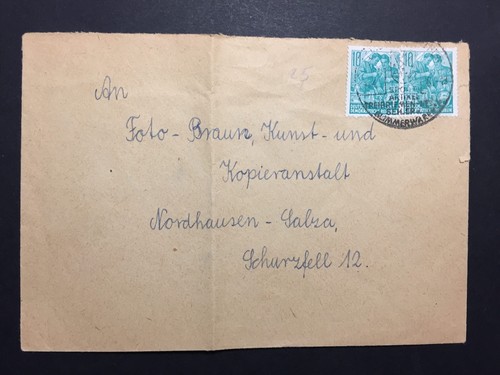 25
10 10
ARTIKEL
TREIBRIEMEN
SEILER-
KLIMMERWAREN
An
Foto - Braun, Kunst - und
Kopieranstalt
Nordhausen - Salza,
Schurzfell 12.